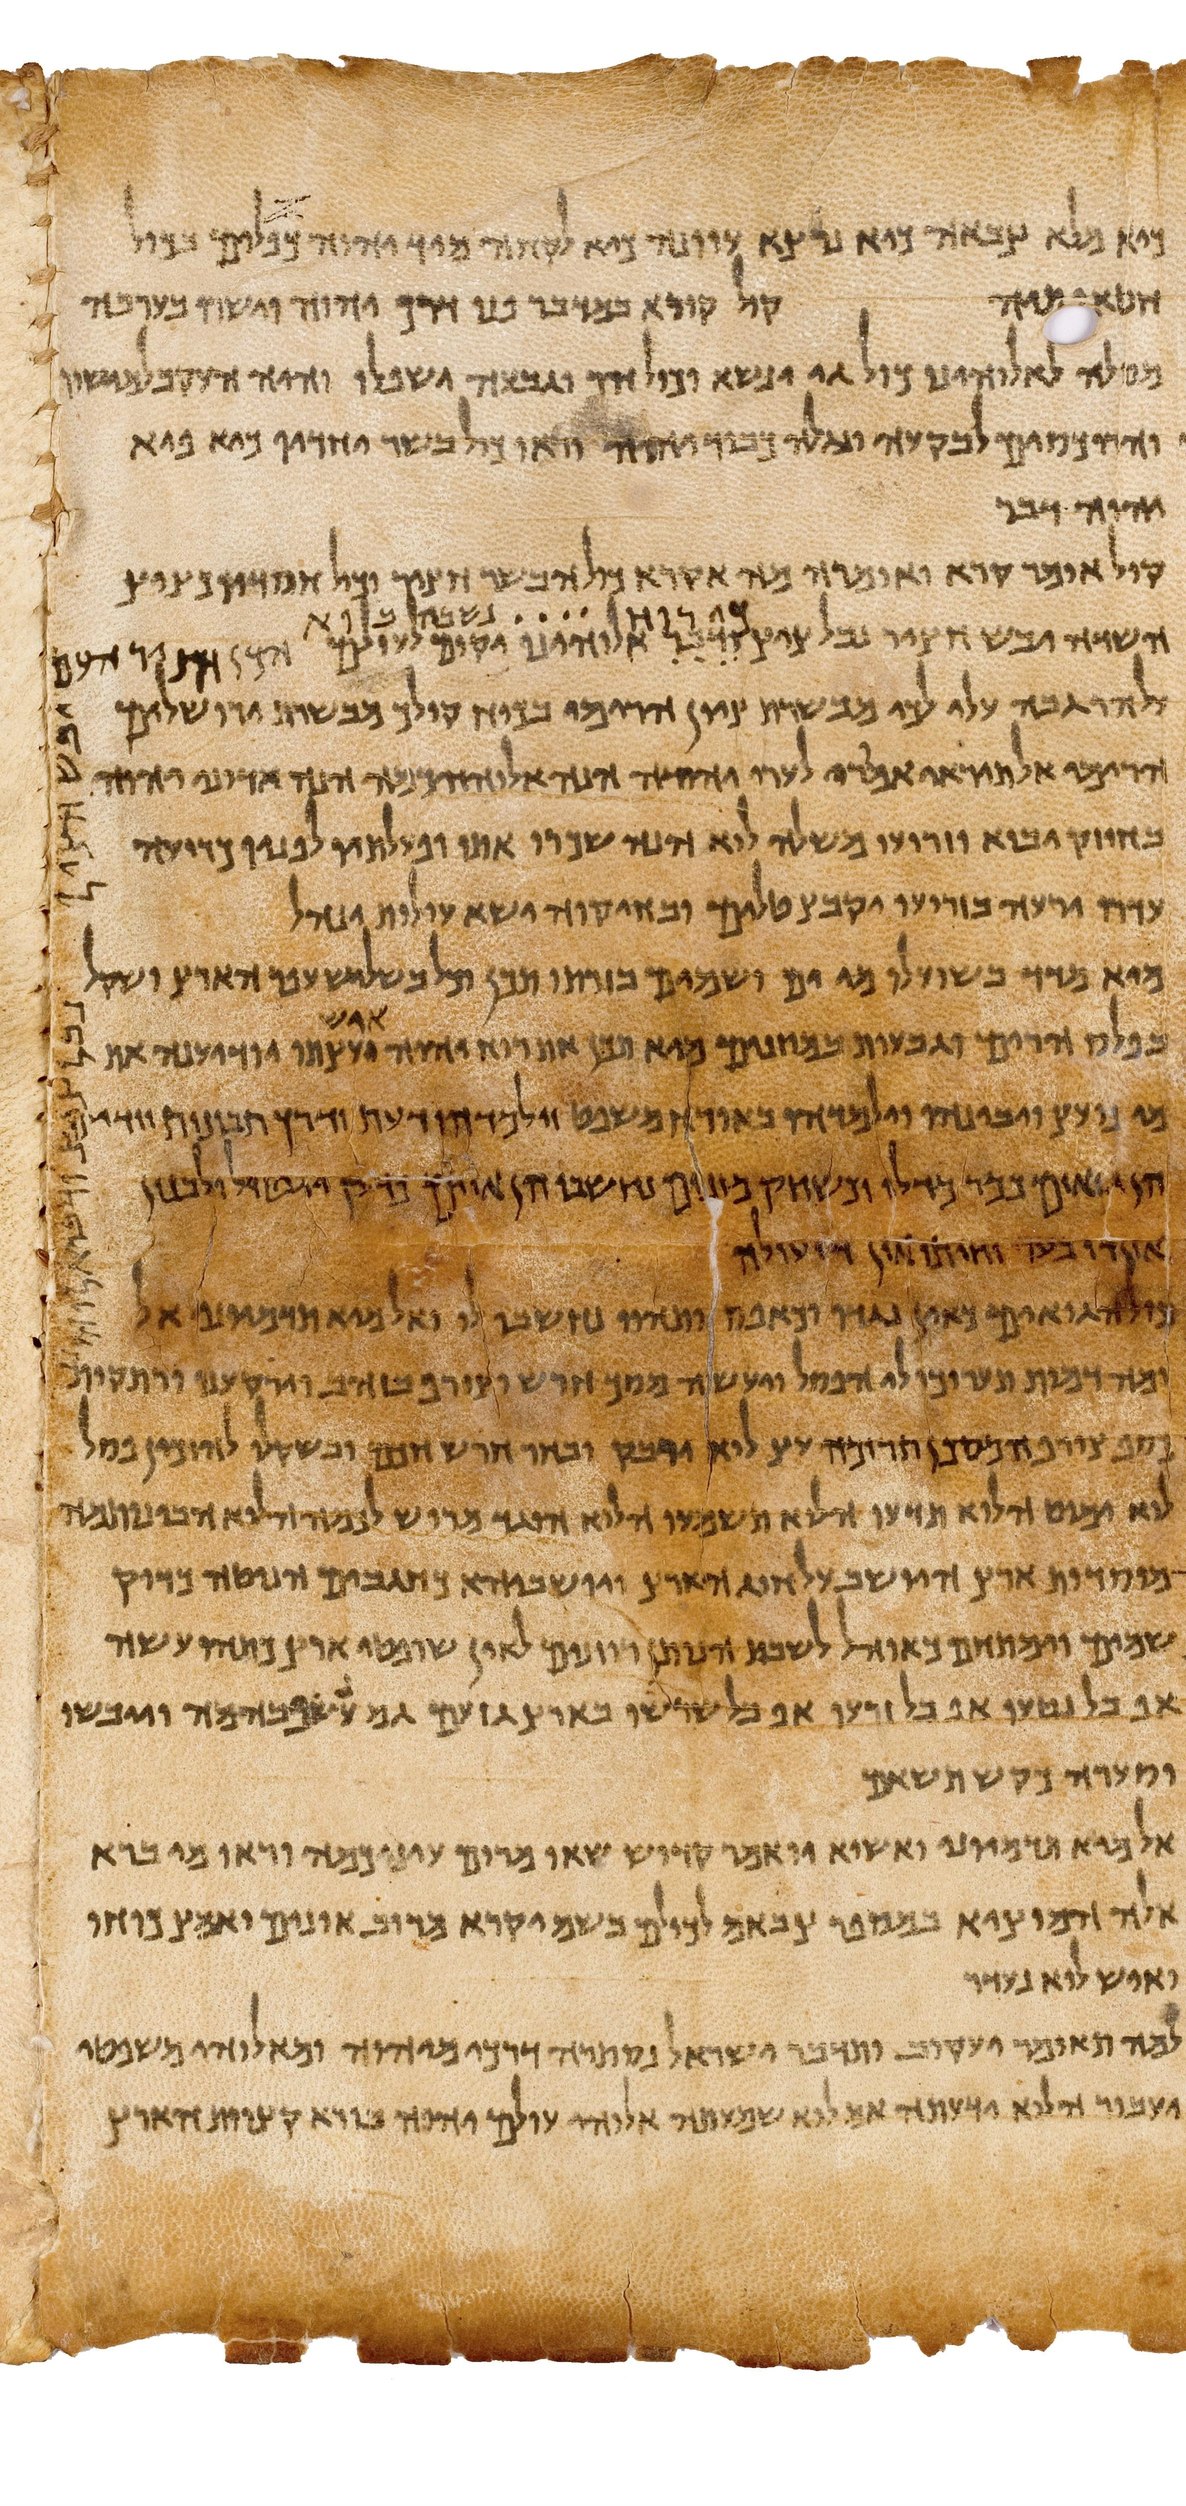 כיא מלא צבאה כיא נרצא עוונה כיא לקחה מיד יהוה כפלים בכול
קול קורא במדבר פנו דרך יהוה וישרו בערבה
מסלה לאלוהינו כול גי ינשא וכול הר וגבעה ישפלו והיה העקב למישור
והרכסים לבקעה ונגלה כבוד יהוה וראו כול בשר יחדיו כיא פיא
יהוה דבר
קול אומר קרא ואומרה מה אקרא כול הבשר חציר וכול חסדיו כציץ
כי רוח .... נשבה בוא
השדה יבש חציר נבל ציץ ודבר אלוהינו יקום לעולם הכן חציר העם
יבש חציר נבל ציץ ודבר אלוהינו
על הר גבה עלי לכי מבשרת ציון הרימי בכוח קולך מבשרת ירושלים
הרימי אל תיראי אמרי לערי יהודה הנה אלוהיכמה הנה אדוני יהוה
בחוזק יבוא וזרועו משלה לוא הנה שכרו אתו ופעלתיו לפניו כרועה
עדרו ירעה בזרועו יקבץ טלים ובחיקוה ישא עולות ינהל
מיא מדד בשועלו מי ים ושמים בזרתו תכן וכל בשליש עפר הארץ ושקל
איש
בפלס הרים וגבעות במוזנים מיא תכן את רוח יהוה ועצתו יודיענה את
מי נועץ ויבינהו וילמדהו באורח משפט וילמדהו דעת ודרך תבונות
הן גואים כמר מדלי וכשחק מזנים נחשבו הן איים כדק ולבנון
אין די בער וחיתו אין די עולה
כול הגואים כאין נגדו וכאפס ותהוו נחשבו לו ואל מיא תדמיוני אל
ומה דמות תערוכו לי הפסל ויעשה מסך חרש וצורף בזהב וירקענו ורתקות
כסף צורף המסכן תרומה עץ לוא ירקב יבחר חרש חכם ובשקט להכין פסל
לוא ימוט הלוא תדעו הלוא תשמעו הלוא הוגד מרוש לכמה הלוא הבינותמה
מוסדות ארץ היושב על חוג הארץ ויושביהא כחגבים הנוטה כדוק
שמים וימתחם כאוהל לשבת הנותן רוזנים לאין שופטי ארץ כתהו עשה
אף בל נטעו אף בל זרעו אף בל שרשו בארץ גזעם גם נשף בהמה ויבשו
וסערה כקש תשאם
אל מיא תדמיוני ואשוא יואמר קדוש שאו מרום עיניכמה וראו מי ברא
אלה המוציא במספר צבאם לכולם בשם יקרא מרוב אונים ואמץ כוחו
ואיש לוא נעדר
למה תאומר יעקוב ותדבר ישראל נסתרה דרכי מיהוה ומאלוהי משפטי
יעבור הלוא ידעתה אם לוא שמעתה אלוהי עולם יהוה בורא קצוות הארץ